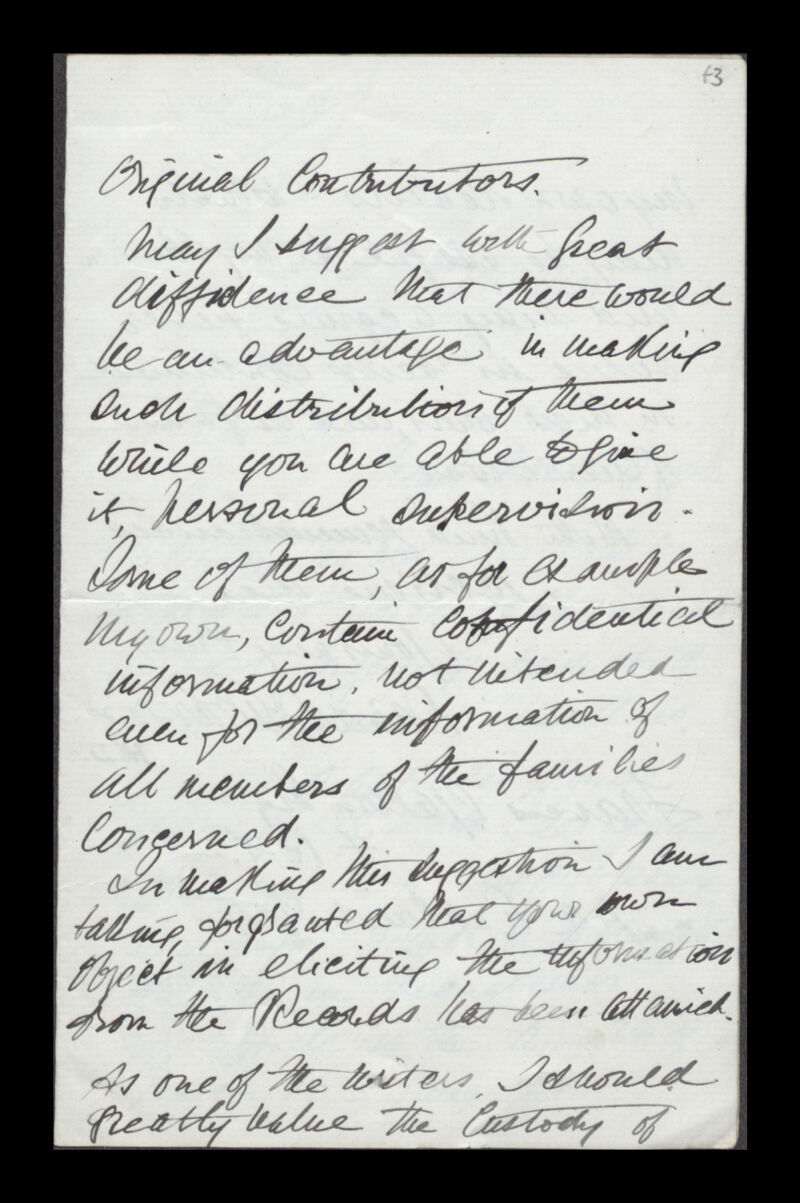 43
Original Contributors.
May I suggest with great
diffidence that there would
be an advantage in making
such distribution of them
while you are able to give
it, personal supervision.
Some of them, as for example
my own, contain confidential
information, not intended
even for the information of
all members of the families
concerned.
In making this suggestion I am
taking, for granted that your own
object in eliciting the information
from the Records has been attained.
As one of the writers, I should
greatly value the custody of